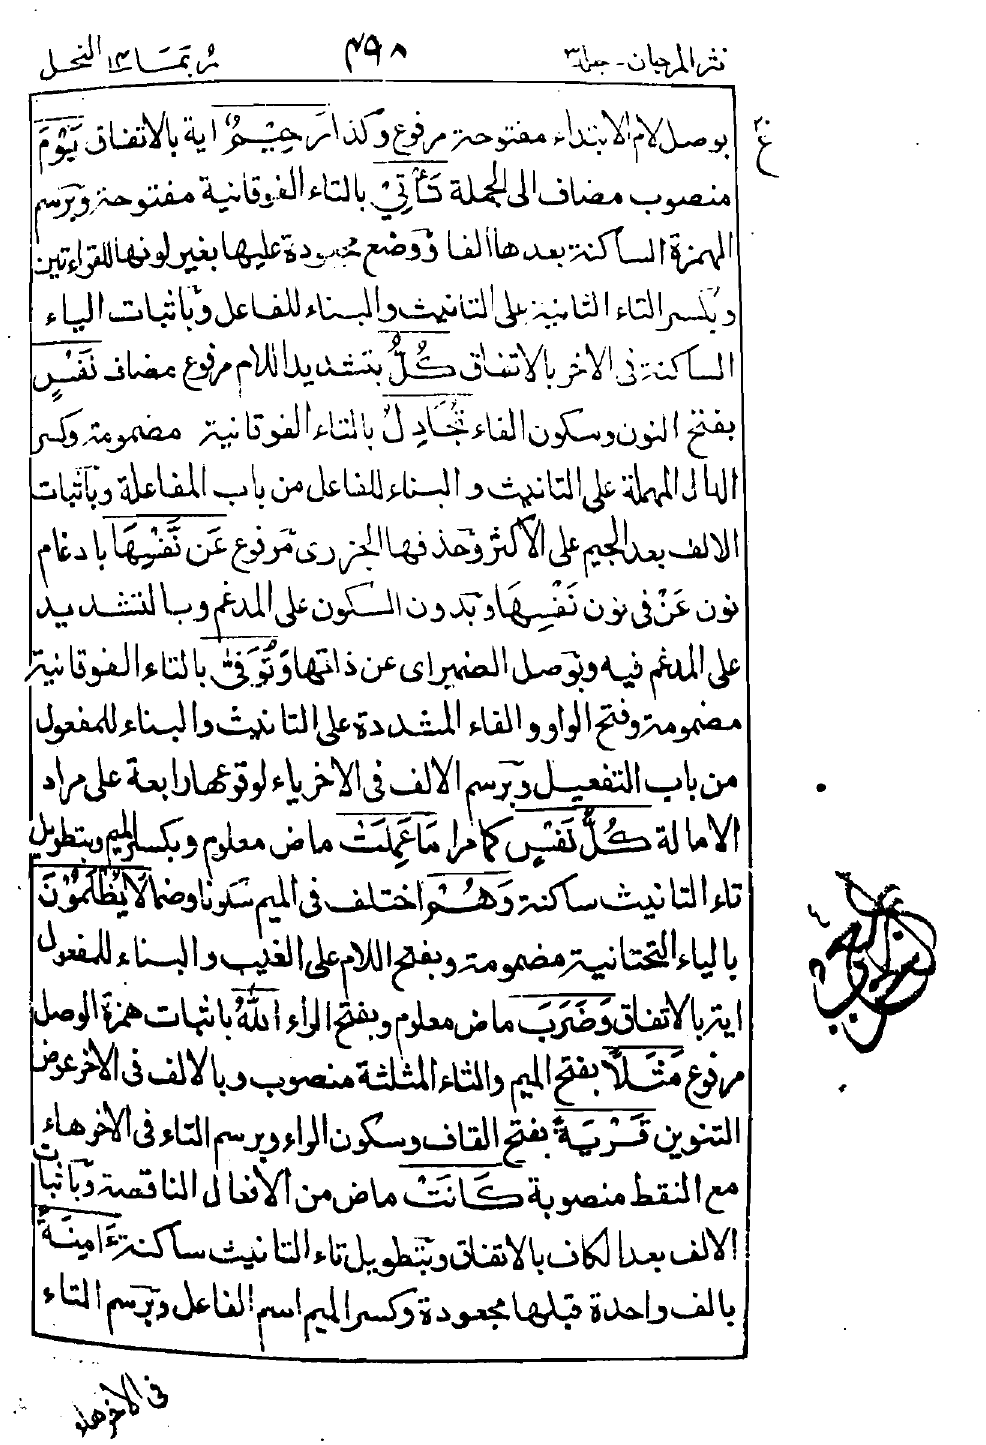 نثر المرجان - جلد ٣
٤٩٨
ربما ١٤ النحل
ع
بوصل لام الابتداء مفتوحة مرفوع وكذا رَحِيْمٌ اية بالاتفاق يَوْمَ
منصوب مضاف الى الجملة تَأْتِيْ بالتاء الفوقانية مفتوحة وبرسم
الهمزة الساكنة بعدها الفا ووضع مجعودة عليها بغير لونها للقراءتين
وبكسر التاء الثانية على التانيث والبناء للفاعل وباثبات الياء
الساكنة فى الاخر بالاتفاق كُلُّ بتشديد اللام مرفوع مضاف نَفْسٍ
بفتح النون وسكون الفاء تُجَادِلُ بالتاء الفوقانية مضمومة وكسر
الدال المهملة على التانيث والبناء للفاعل من باب المفاعلة وباثبات
الالف بعد الجيم على الاكثر وحذفها الجزرى مرفوع عَن نَّفْسِهَا بادغام
نون عَنْ فى نون نَفْسِهَا وبدون السكون على المدغم وبالتشديد
على المدغم فيه وبوصل الضمير اى عن ذاتها وَتُوَفّٰى بالتاء الفوقانية
مضمومة وفتح الواو والفاء المشددة على التانيث والبناء للمفعول
من باب التفعيل وبرسم الالف فى الاخر ياء لوقوعها رابعة على مراد
الامالة كُلُّ نَفْسٍ كما مرا مَا عَمِلَتْ ماض معلوم وبكسر الميم وبتطويل
تاء التانيث ساكنة وَهُمْ اختلف فى الميم سكونا وضما لَا يُظْلَمُوْنَ
بالياء التحتانية مضمومة وبفتح اللام على الغيب والبناء للمفعول
اية بالاتفاق وَضَرَبَ ماض معلوم وبفتح الراء اللّٰهُ باثبات همزة الوصل
مرفوع مَثَلًا بفتح الميم والثاء المثلثة منصوب وبالالف فى الاخر عوض
التنوين قَرْيَةً بفتح القاف وسكون الراء وبرسم التاء فى الاخر هاء
مع النقط منصوبة كَانَتْ ماض من الافعال الناقصة وباثبات
الالف بعد الكاف بالاتفاق وبتطويل تاء التانيث ساكنة ءَامِنَةً
بالف واحدة قبلها مجعودة وكسر الميم اسم الفاعل وبرسم التاء
فى الاخر هاء